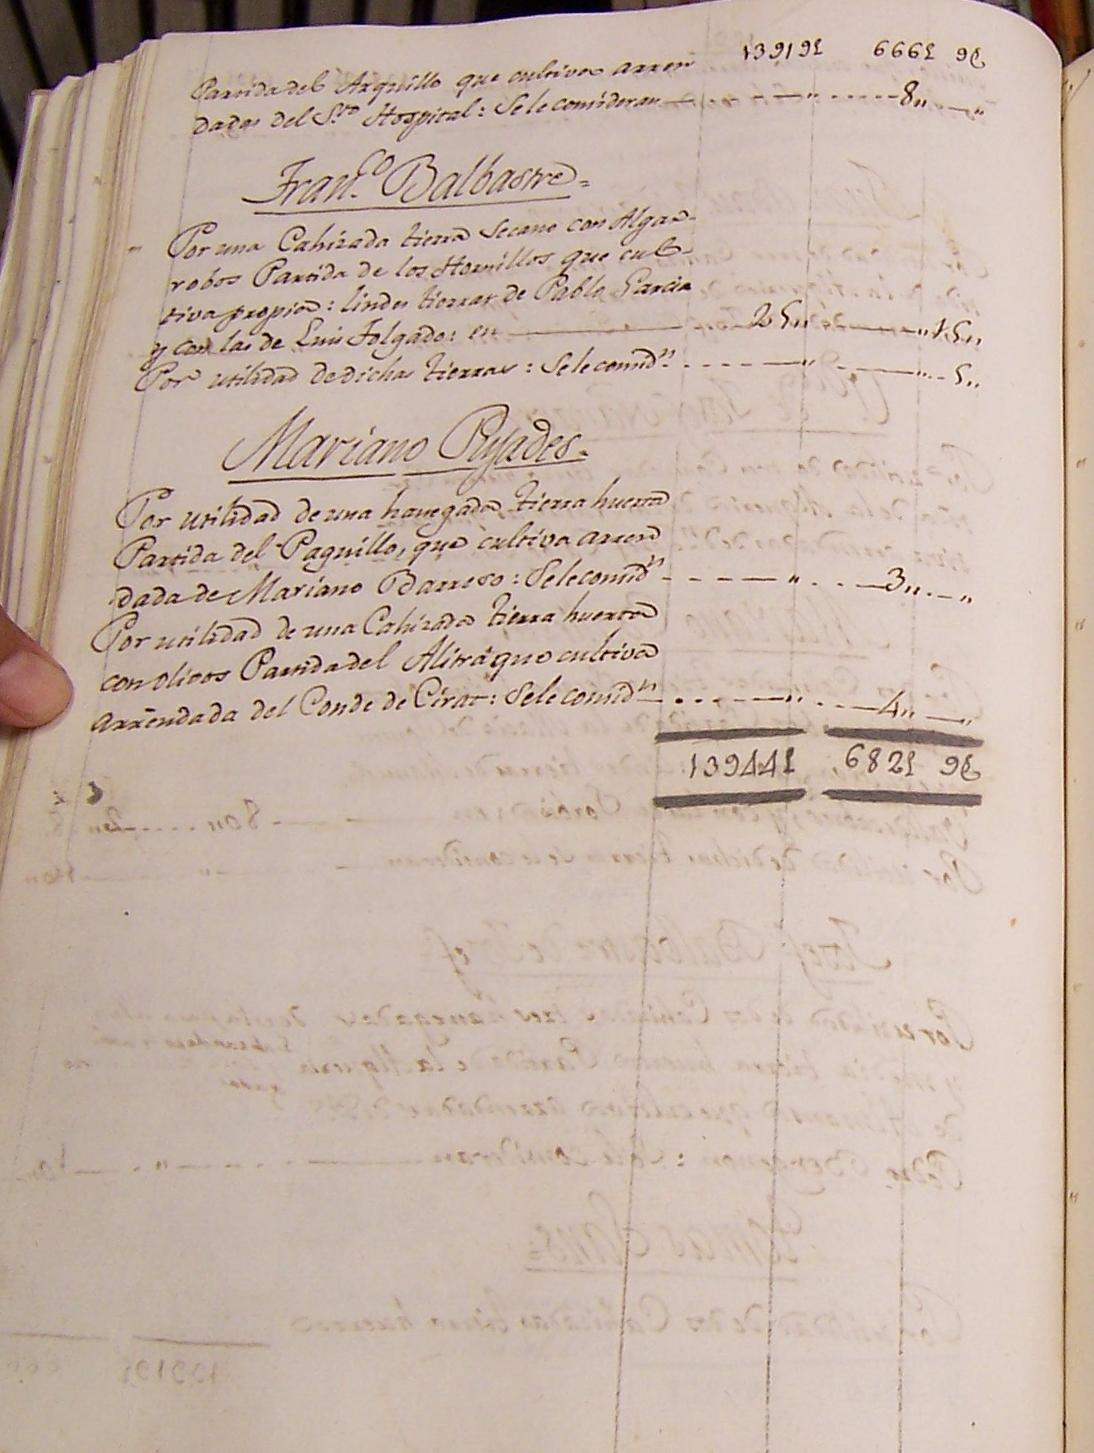 13919£ 666£ 9
Partida del Arquillo que cultiva arren
dadas del S.to Hospital: Se le consideran — „ 8„ „
Fran.co Balbastre
Por una Cahizada tierra Secano con Alga
robos Partida de los Hornillos que cul
tiva propia: lindes tierras de Pablo Garcia
y con las de Luis Folgado: en — 25„ — „15„
Por utilidad de dichas tierras: Se le consid.n — „ — 5„
Mariano Pujades
Por utilidad de una hanegada tierra huerta
Partida del Paguillo, que cultiva arren
dada de Mariano Barreso: Se le consid.n — „ — 3„ „
Por utilidad de una Cahizada tierra huerta
con olivos Partida del Alitrá que cultiva
arrendada del Conde de Cirat: Se le consid.n — „ — 4„ „
13944£ 682£ 9